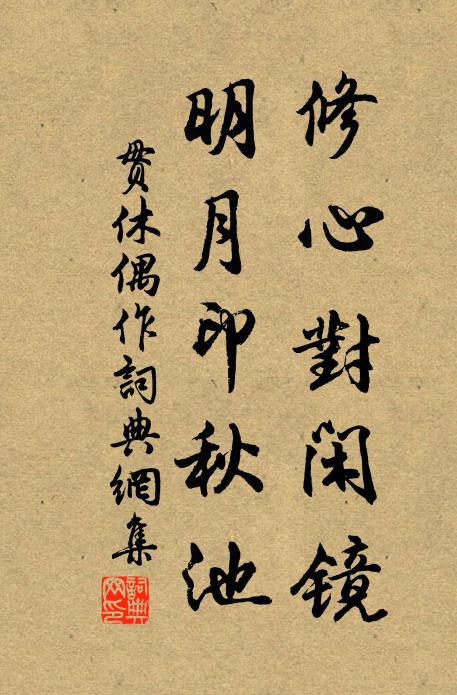 修心對閑镜
明月印秋池
贯休偶作詞典網集
詞典网印